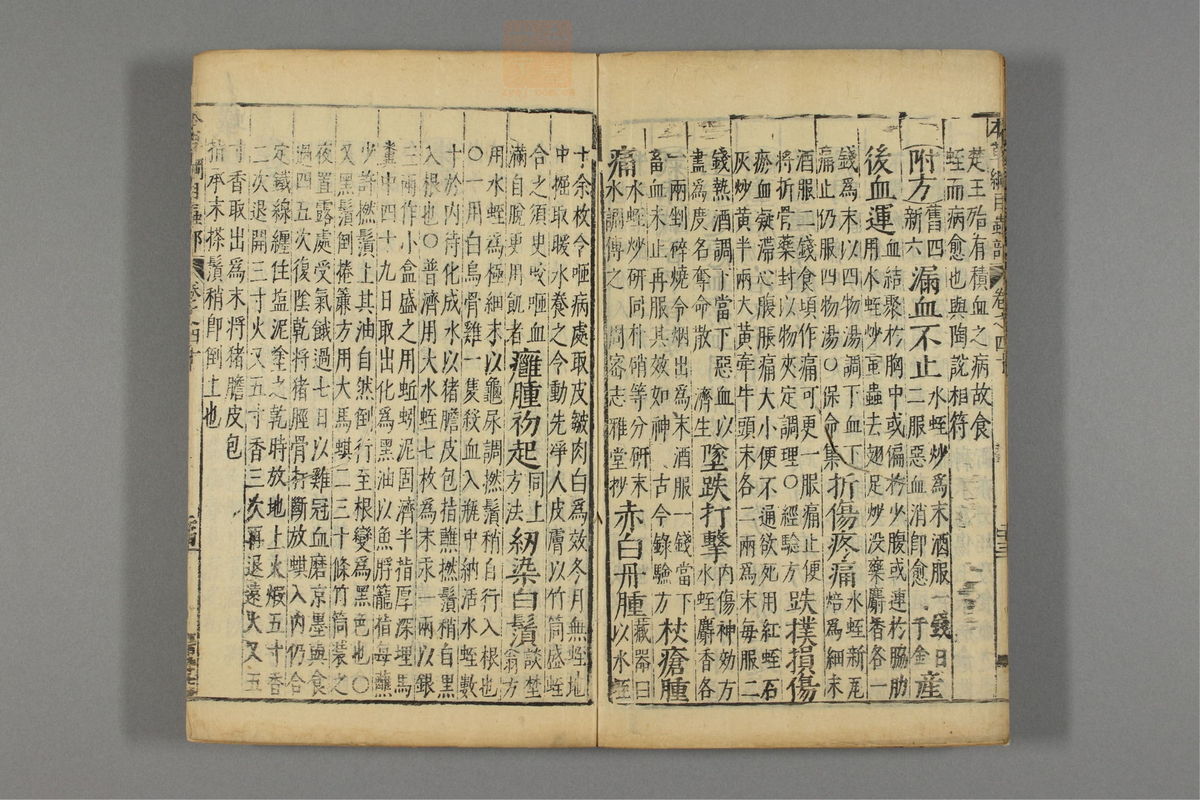 楚王殆有積血之病故食
蛭而病愈也與陶說相符
附方舊四新六漏血不止水蛭炒爲末酒服一錢日二服惡血消卽愈千金産
後血運血結聚於胸中或偏於少腹或連於脇肋用水蛭炒䖟蟲去翅足炒没藥麝香各一
錢爲末以四物湯調下血下痛止仍服四物湯〇保命集折傷疼痛水蛭新瓦焙爲細末
酒服二錢食頃作痛可更一服痛止便將折骨藥封以物夾定調理〇經驗方跌撲損傷
瘀血凝滯心腹脹痛大小便不通欲死用紅蛭石灰炒黄半兩大黄牽牛頭末各二兩爲末每服二
錢熱酒調下當下惡血以盡爲度名奪命散濟生墜跌打撃内傷神効方水蛭麝香各
一兩剉碎燒令烟出爲末酒服一錢當下畜血未止再服其效如神古今錄驗方杖瘡腫
痛水蛭炒研同朴硝等分研末水調傅之周密志雅堂抄赤白丹腫藏器曰以水蛭
十余枚令咂病處取皮皺肉白爲效冬月無蛭地中掘取暖水養之令動先淨人皮膚以竹筒盛蛭
合之須臾咬咂血滿自脫更用飢者癰腫初起同上方法紉染白鬚談埜翁方
用水蛭爲極細末以龜尿調撚鬚稍自行入根也〇一用白烏骨雞一隻殺血入瓶中納活水蛭數
十於内待化成水以猪膽皮包指蘸撚鬚稍自黑入根也〇普濟用大水蛭七枚爲末汞一兩以銀
三兩作小盒盛之用蚯蚓泥固濟半指厚深埋馬糞中四十九日取出化爲黑油以魚脬籠指每蘸
少許撚鬚上其油自然倒行至根變爲黑色也〇又黑鬚倒捲簾方用大馬蜞二三十條竹筒裝之
夜置露處受氣餓過七日以雞冠血磨京墨與食過四五次復陰乾將猪脛骨打斷放蜞入内仍合
定鐵線纏住塩泥塗之乾時放地上火煅五寸香二次退開三寸火又五寸香三次再退遠火又五
寸香取出爲末將猪膽皮包
指承末搽鬚稍卽倒上也